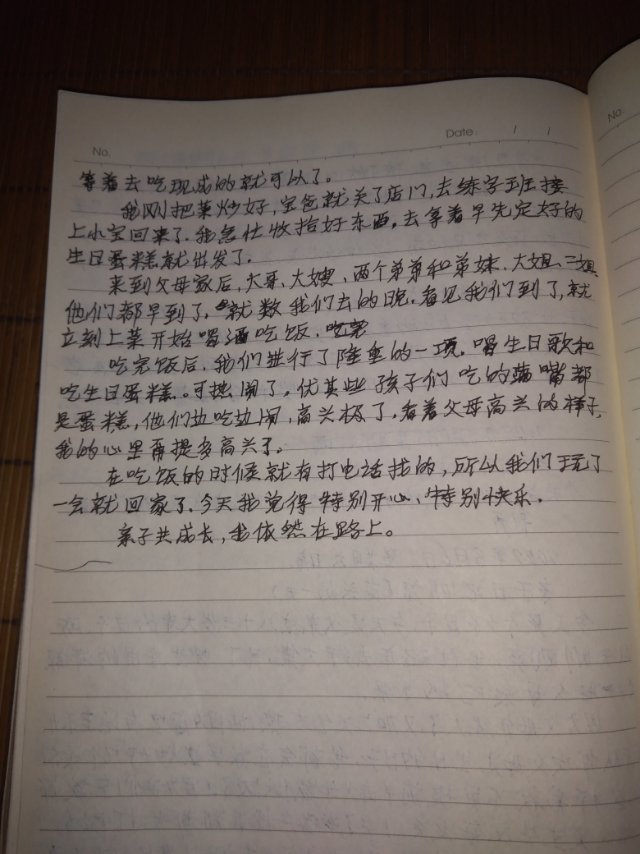 No.
Date: / /
No:
等着去吃现成的就可以了。
我刚把菜炒好,宝爸就关了店门,去练字班接
上小宝回来了.我急忙收拾好东西,去拿着早先定好的
生日蛋糕就出发了.
来到父母家后,大哥、大嫂、两个弟弟和弟妹、大姐、二姐
他们都早到了,就数我们去的晚.看见我们到了,就
立刻上菜开始喝酒吃饭.吃完
吃完饭后,我们进行了隆重的一项.唱生日歌和
吃生日蛋糕。可热闹了,优其是孩子们吃的满嘴都
是蛋糕,他们边吃边闹,高兴极了,看着父母高兴的样子,
我的心里再提多高兴了。
在吃饭的时候就有打电话找的,所以我们玩了
一会就回家了.今天我觉得特别开心、特别快乐.
亲子共成长,我依然在路上。